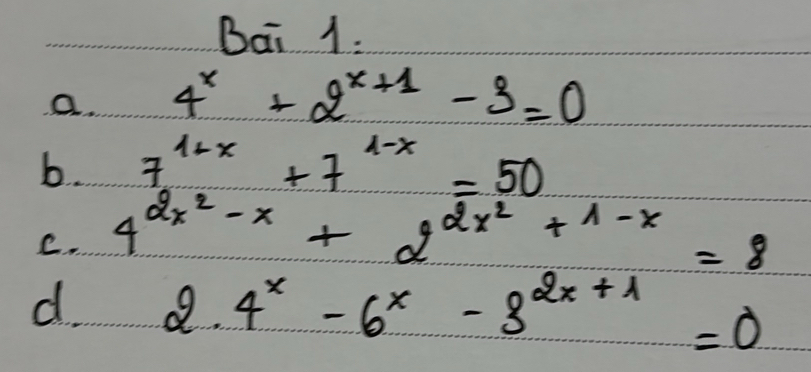 Bài 1:
a. 4^x + 2^{x+1} - 3 = 0
b. 7^{1+x} + 7^{1-x} = 50
c. 4^{2x^2 - x} + 2^{2x^2 + 1 - x} = 8
d. 2.4^x - 6^x - 3^{2x+1} = 0